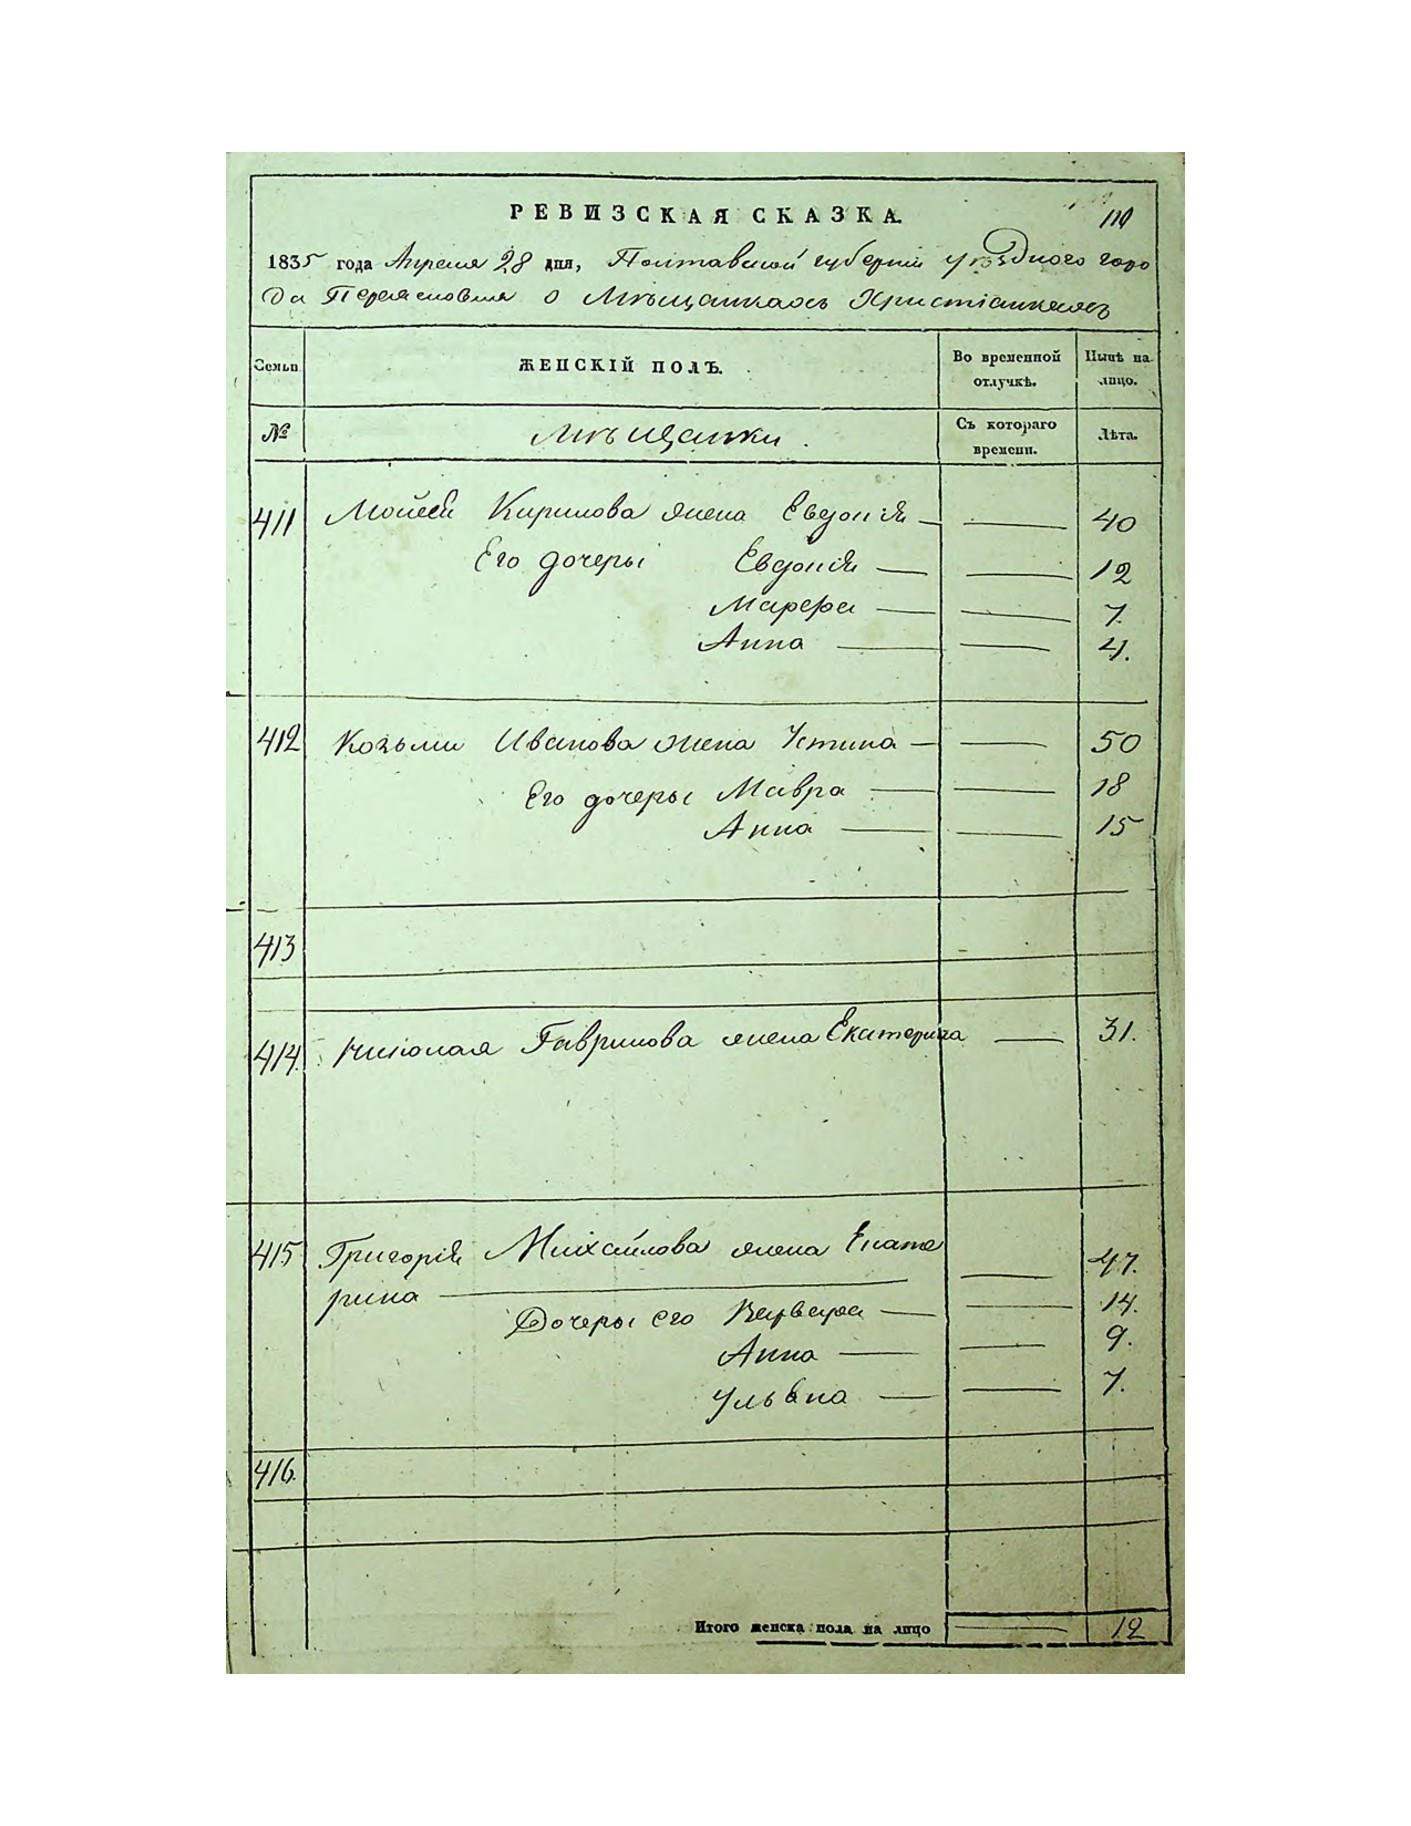 РЕВИЗСКАЯ СКАЗКА.
110
1835 года Апреля 28 дня, Полтавской губерніи уѣзднаго горо
да Переяславля о Мѣщанкахъ Христіанкахъ
Семьи
ЖЕНСКІЙ ПОЛЪ.
Во временной отлучкѣ.
Нынѣ на лицо.
№
Мѣщанки.
Съ котораго времени.
Лѣта.
411 Мойсея Кирилова жена Евдокія — — 40
Его дочеры Евдокія — — 12
Марфа — — 7.
Анна — — 4.
412 Козьми Иванова жена Устина — — 50
Его дочеры Мавра — — 18
Анна — — 15
413
414. Николая Гаврилова жена Екатерина — 31.
415 Григорія Михайлова жена Екате
рина — — 47.
Дочеры его Варвара — — 14.
Анна — — 9.
Ульяна — — 7.
416.
Итого женска пола на лицо — 12